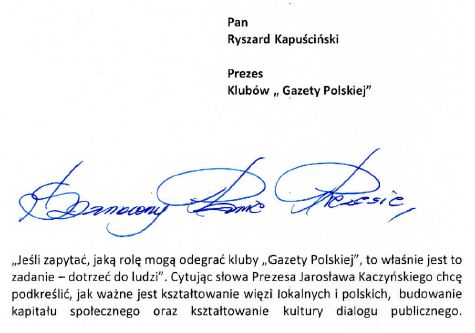 Pan
Ryszard Kapuściński
Prezes
Klubów „ Gazety Polskiej”
Szanowny Panie Prezesie,
„Jeśli zapytać, jaką rolę mogą odegrać kluby „Gazety Polskiej”, to właśnie jest to
zadanie – dotrzeć do ludzi”. Cytując słowa Prezesa Jarosława Kaczyńskiego chcę
podkreślić, jak ważne jest kształtowanie więzi lokalnych i polskich, budowanie
kapitału społecznego oraz kształtowanie kultury dialogu publicznego.